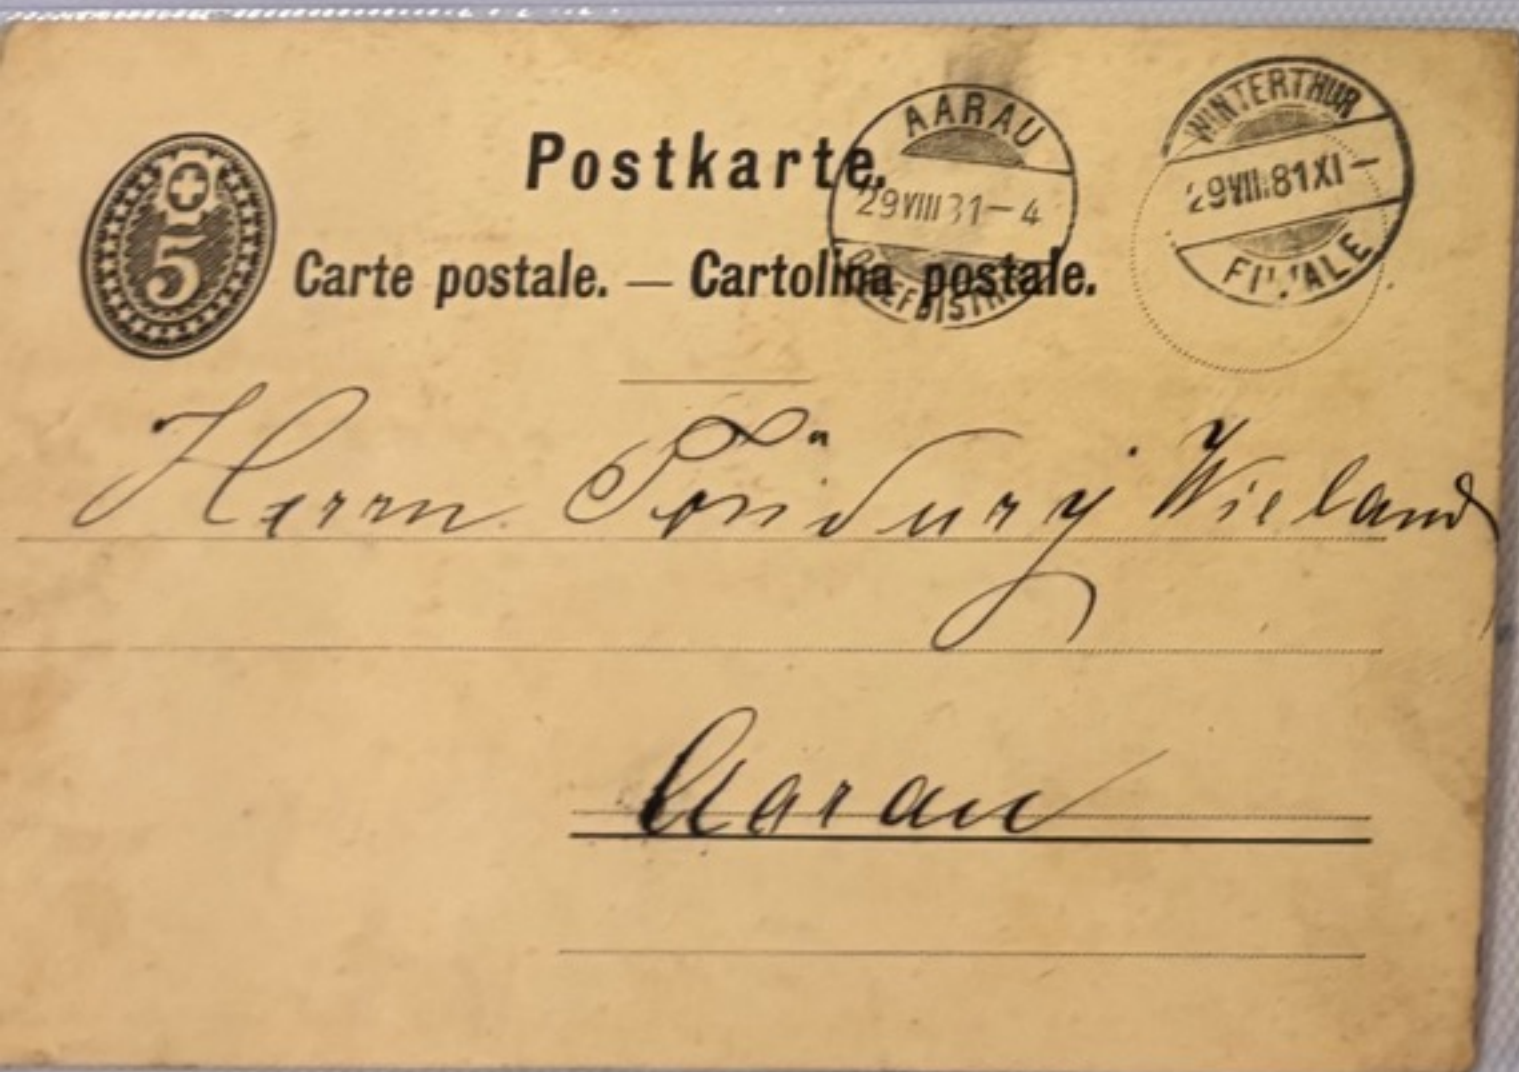 5
Postkarte.
Carte postale. — Cartolina postale.
AARAU
29 VIII 81 – 4
BRIEFDISTR.
WINTERTHUR
29 VIII. 81 XI –
FILIALE
Herrn Wieland
Aarau